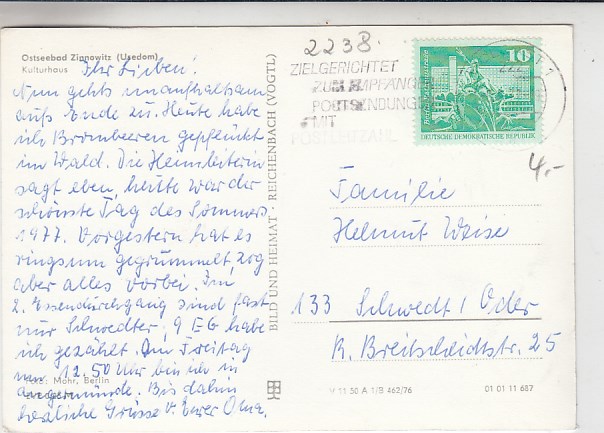 Ostseebad Zinnowitz (Usedom)
Kulturhaus
Ihr Lieben!
Nun gehts unaufhaltsam
aufs Ende zu. Heute habe
ich Brombeeren gepflückt
im Wald. Die Heimleiterin
sagt eben, heute war der
schönste Tag des Sommers
1977. Vorgestern hat es
ringsum gegrummelt, zog
aber alles vorbei. Im
2. Essendurchgang sind fast
nur Schwedter, 9 EG habe
ich gezählt. Am Freitag
um 12.50 Uhr bin ich in
Angermünde. Bis dahin
herzliche Grüsse v. Eurer Oma.
Foto: Mohr, Berlin
BILD UND HEIMAT · REICHENBACH (VOGTL)
2238
ZIELGERICHTET
ZUM EMPFÄNGER
POSTSENDUNGEN
MIT
POSTLEITZAHL
10
DEUTSCHE DEMOKRATISCHE REPUBLIK
4,-
Familie
Helmut Weise
133 Schwedt/Oder
R. Breitscheidstr. 25
V 11 50 A 1/B 462/76
01 01 11 687